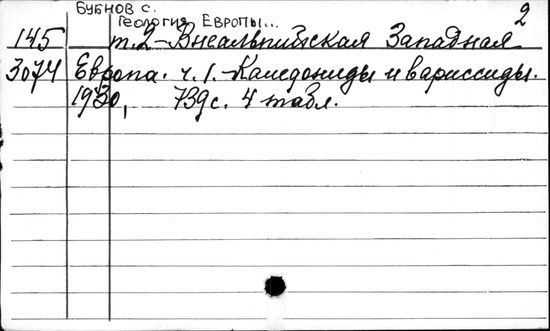 Бубнов С.
Геология Европы... 2
145 т.2-Внеальпийская Западная
3074 Европа. ч.1.-Каледониды и вариссиды.
1930, 739с. 4 табл.